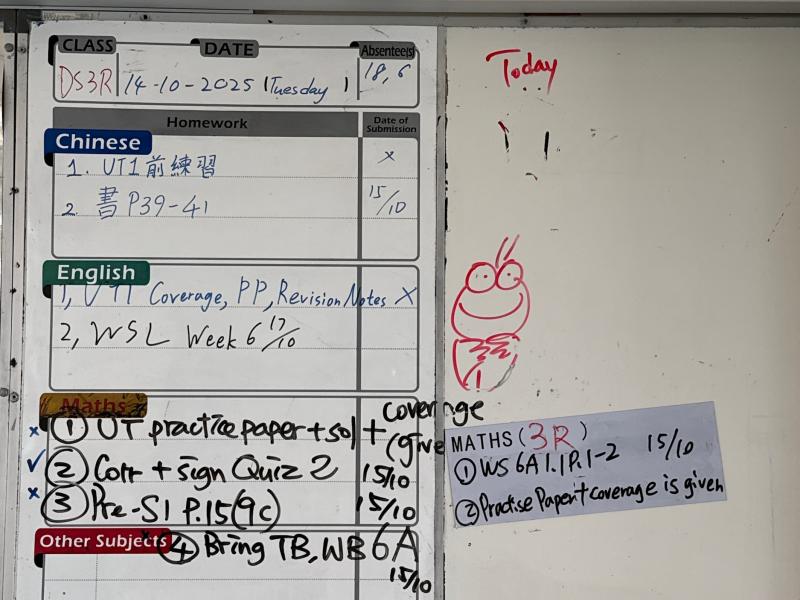 CLASS DATE Absentee(s)
DS3R 14-10-2025 (Tuesday) 18, 6
Homework Date of Submission
Chinese
1. UT1前練習 x
2. 書 P39-41 15/10
English
1, UT1 Coverage, PP, Revision Notes X
2, WSL Week 6 17/10
Maths
x ① UT practice paper + sol + coverage (give
✓ ② Corr + sign Quiz 2 15/10
x ③ Pre-S1 P.15(9c) 15/10
Other Subjects
④ Bring TB, WB 6A 15/10
Today
MATHS (3R)
① WS 6A1.1P.1-2 15/10
② Practise Paper + coverage is given